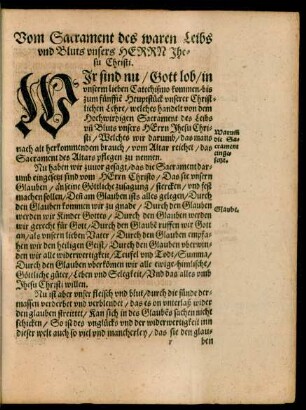 Vom Sacrament des waren Leibs
vnd Bluts vnsers HERRN Jhe-
su Christi.
WIr sind nu / Gott lob / in
vnserm lieben Catechismo kommen, bis
zum fünfften Heuptstück vnserer Christ-
lichen Lehre, welches handelt von dem
Hochwirdigen Sacrament des Leibs
vñ Bluts vnsers HErrn Jhesu Chri-
sti / Welches wir darumb / das mans
nach alt herkommendem brauch / vom Altar reichet / das
Sacrament des Altars pflegen zu nennen.
Warumb
die Sa-
crament
einge-
setzt.
Nu haben wir zuuor gesagt / das die Sacrament dar-
umb eingesetzt sind vom HErrn Christo / Das sie vnsern
Glauben / an seine Göttliche zusagung / stercken / vnd fest
machen sollen / Deñ am Glauben ists alles gelegen / Durch
den Glauben kommen wir zu gnade / Durch den Glauben
werden wir Kinder Gottes / Durch den Glauben werden
wir gerecht für Gott / Durch den Glaubē ruffen wir Gott
an / als vnsern lieben Vater / Durch den Glauben empfa-
hen wir den heiligen Geist / Durch den Glauben vberwin-
den wir alle widerwertigkeit / Teufel vnd Todt / Summa /
Durch den Glauben vberkomen wir alle ewige himlische /
Göttliche güter / Leben vnd Seligkeit / Vnd das alles vmb
Jhesu Christi willen.
Glaube.
Nu ist aber vnser fleisch vnd blut / durch die sünde der-
massen verderbet vnd verblendet / das es on vnterlas wider
den glauben streittet / Kan sich in des Glaubēs sachen nicht
schicken / So ist des vnglücks vnd der widerwertigkeit inn
dieser welt auch so viel vnd mancherley / das sie den glau-
r
ben